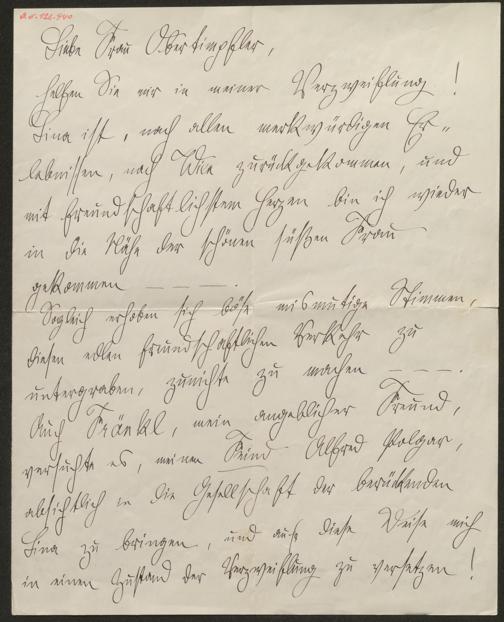 Liebe Frau Obertimpfler,
helfen Sie mir in meiner Verzweiflung!
Lina ist, nach allen merkwürdigen Er-
lebnissen, nach Wien zurückgekommen, und
mit freundschaftlichstem Herzen bin ich wieder
in die Nähe der schönen süßen Frau
gekommen — — — .
Sogleich erhoben sich böse mismutige Stimmen,
diesen edlen freundschaftlichen Verkehr zu
untergraben, zunichte zu machen — — — .
Auch Fränkl, mein angeblicher Freund,
versuchte es, meinen Feind Alfred Polgar,
absichtlich in die Gesellschaft der berückenden
Lina zu bringen, und auf diese Weise mich
in einen Zustand der Verzweiflung zu versetzen!